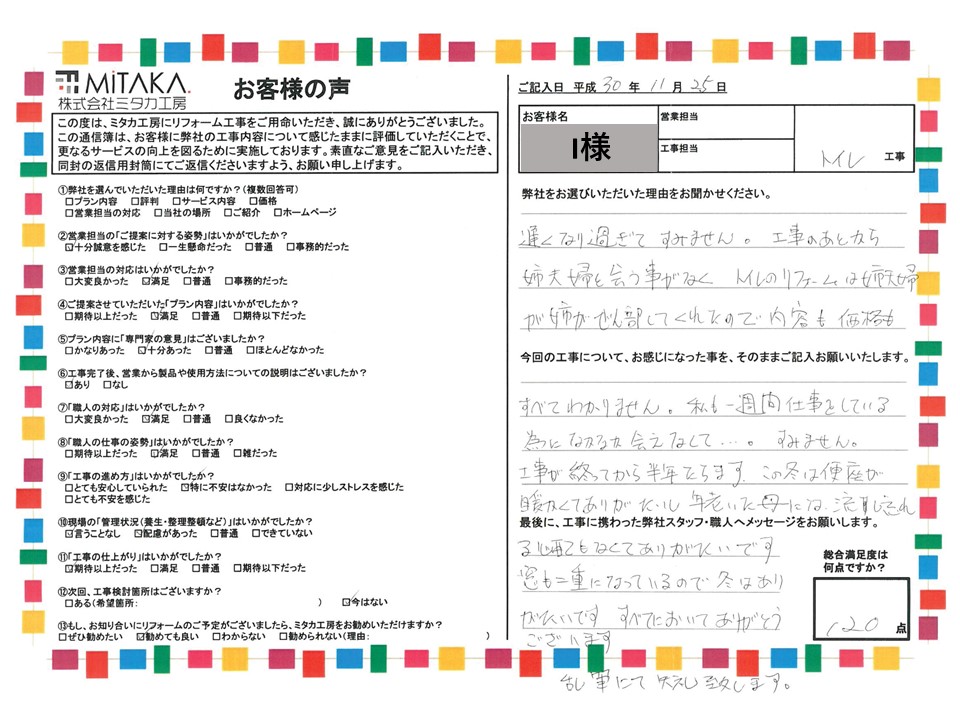 MiTAKA.
株式会社ミタカ工房
お客様の声
この度は、ミタカ工房にリフォーム工事をご用命いただき、誠にありがとうございました。
この通信簿は、お客様に弊社の工事内容について感じたままに評価していただくことで、
更なるサービスの向上を図るために実施しております。素直なご意見をご記入いただき、
同封の返信用封筒にてご返信くださいますよう、お願い申し上げます。
①弊社を選んでいただいた理由は何ですか？(複数回答可)
□プラン内容 □評判 □サービス内容 □価格
□営業担当の対応 □当社の場所 □ご紹介 □ホームページ
②営業担当の「ご提案に対する姿勢」はいかがでしたか？
☑十分誠意を感じた □一生懸命だった □普通 □事務的だった
③営業担当の対応はいかがでしたか？
□大変良かった ☑満足 □普通 □事務的だった
④ご提案させていただいた「プラン内容」はいかがでしたか？
□期待以上だった ☑満足 □普通 □期待以下だった
⑤プラン内容に「専門家の意見」はございましたか？
□かなりあった ☑十分あった □普通 □ほとんどなかった
⑥工事完了後、営業から製品や使用方法についての説明はございましたか？
☑あり □なし
⑦「職人の対応」はいかがでしたか？
□大変良かった ☑満足 □普通 □良くなかった
⑧「職人の仕事の姿勢」はいかがでしたか？
□期待以上だった ☑満足 □普通 □雑だった
⑨「工事の進め方」はいかがでしたか？
□とても安心していられた ☑特に不安はなかった □対応に少しストレスを感じた
□とても不安を感じた
⑩現場の「管理状況(養生・整理整頓など)」はいかがでしたか？
☑言うことなし ☑配慮があった □普通 □できていない
⑪「工事の仕上がり」はいかがでしたか？
☑期待以上だった □満足 □普通 □期待以下だった
⑫次回、工事検討箇所はございますか？
□ある(希望箇所: ) ☑今はない
⑬もし、お知り合いにリフォームのご予定がございましたら、ミタカ工房をお勧めいただけますか？
□ぜひ勧めたい ☑勧めても良い □わからない □勧められない(理由: )
ご記入日 平成 30 年 11 月 25 日
お客様名
I様
営業担当
工事担当
トイレ 工事
弊社をお選びいただいた理由をお聞かせください。
遅くなり過ぎてすみません。工事のあとから
姉夫婦と会う事がなく トイレのリフォームは姉夫婦
が姉がぜん部してくれたので内容も価格も
今回の工事について、お感じになった事を、そのままご記入お願いいたします。
すべてわかりません。私も一週間仕事をしている
為になかなか会えなくて…。すみません。
工事が終ってから半年たちます。この冬は便座が
暖かくてありがたいし年老いた母には、流し忘れ
最後に、工事に携わった弊社スタッフ・職人へメッセージをお願いします。
る心配もなくてありがたいです
窓も二重になっているので冬はあり
がたいです すべてにおいてありがとう
ございます
乱筆にて失礼致します。
総合満足度は
何点ですか？
120 点